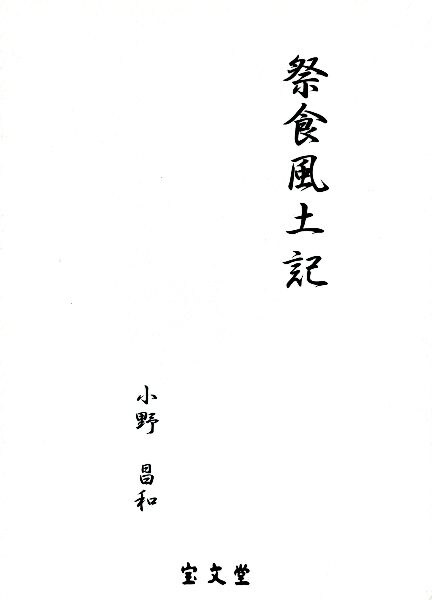 祭食風土記
小野 昌和
宝文堂